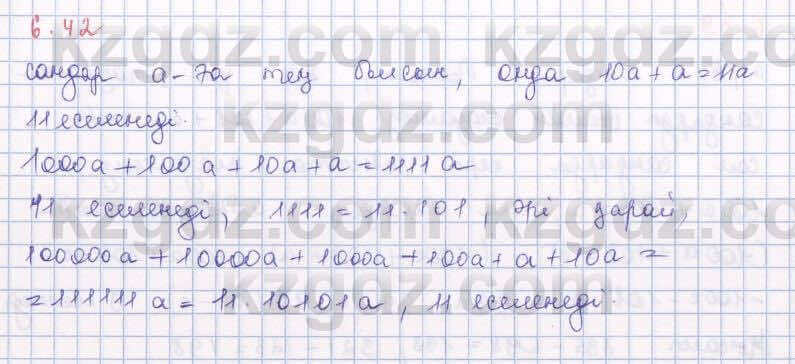 6.42
сандар a-7a тең болсын, онда 10a+a=11a
11 еселенеді.
1000a+100a+10a+a=1111a
11 еселенеді, 1111=11·101, әрі қарай,
100000a+10000a+1000a+100a+a+10a=
=111111a=11·10101a, 11 еселенеді.
kzgdz.com
kzgdz.com
kzgdz.com
kzgdz.com